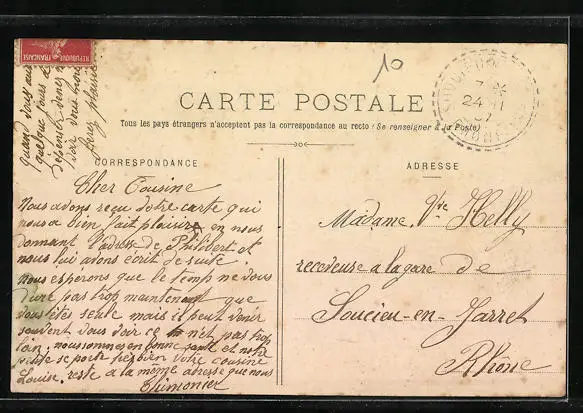 REPUBLIQUE FRANÇAISE
10
CARTE POSTALE
Tous les pays étrangers n'acceptent pas la correspondance au recto (Se renseigner à la Poste)
CORRESPONDANCE
ADRESSE
quand vous aus
quelque jours a
dépenser venez n
voir vous nous
ferez plaisir
Cher Cousine
Nous avons reçu votre carte qui
nous a bien fait plaisire en nous
donnant l'adresse de Philibert et
nous lui avons écrit de suite.
Nous esperons que le temp ne vous
dure pas trop maintenant que
vous êtes seule mais il peut venir
souvent vous voir ce n'et pas trop
loin. nous sommes en bonne santé et notre
se porte très bien votre cousine
Louise. reste a la même adresse que nous
Thimonier
Madame Vve Helly
receveuse a la gare de
Soucieu-en-Jarret
Rhône
24
07
RHONE